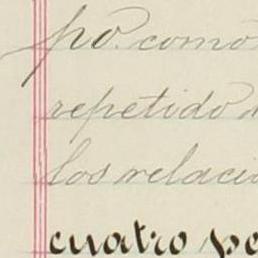 po. como
repetido
los relaci
cuatro pe